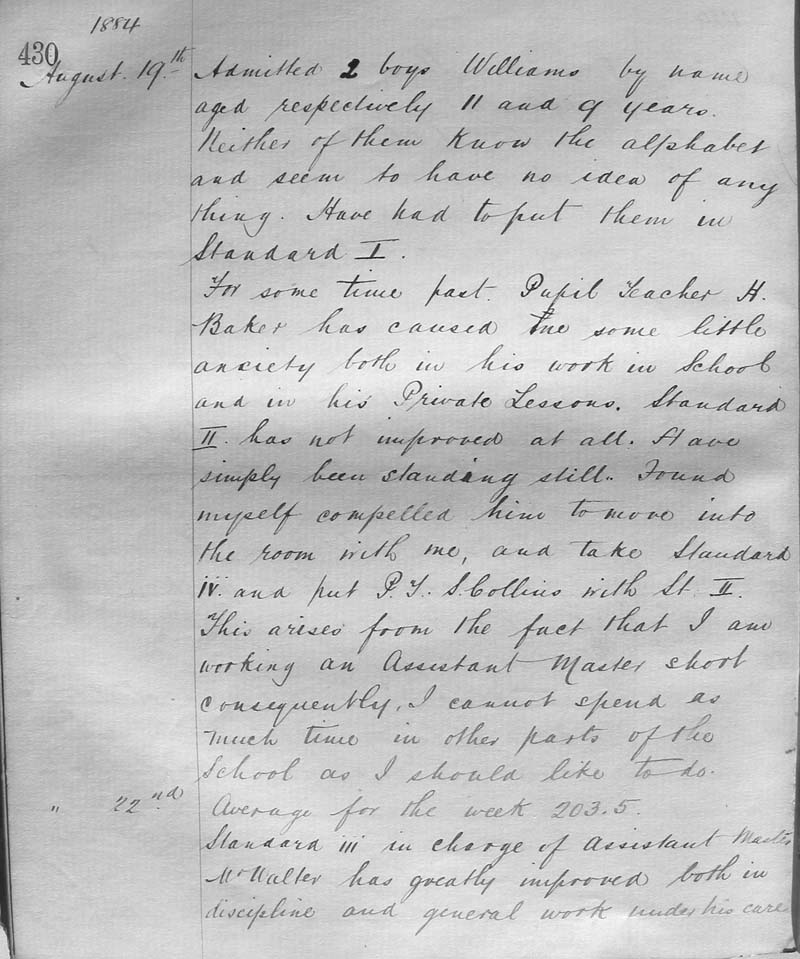 1884
430
August. 19.th Admitted 2 boys Williams by name
aged respectively 11 and 9 years.
Neither of them know the alphabet
and seem to have no idea of any
thing. Have had to put them in
Standard I.
For some time past. Pupil Teacher H.
Baker has caused me some little
anxiety both in his work in School
and in his Private Lessons. Standard
II. has not improved at all. Have
simply been standing still. Found
myself compelled him to move into
the room with me, and take Standard
iv. and put P. T. S. Collins with St. II.
This arises from the fact that I am
working an Assistant Master short
consequently, I cannot spend as
much time in other parts of the
School as I should like to do.
" 22nd. Average for the week 203.5.
Standard iii in charge of Assistant Master
Mr Walter has greatly improved both in
discipline and general work under his care